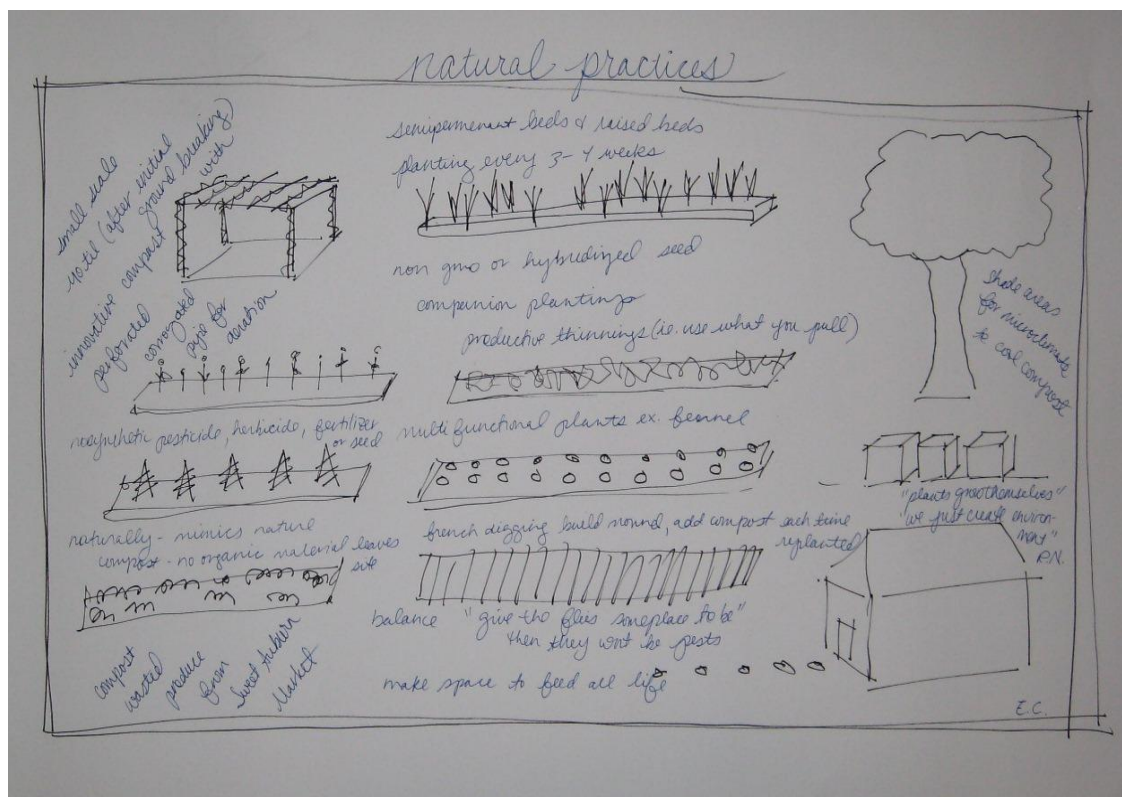 natural practices
small scale
no til (after initial
ground breaking)
innovative compost with
perforated
corrugated
pipe for
aeration
semipermenant beds & raised beds
planting every 3-4 weeks
non gmo or hybridized seed
companion plantings
productive thinnings (ie. use what you pull)
shade areas
for microclimate
to cool compost
nosynthetic pesticide, herbicide, fertilizer
or seed
multifunctional plants ex. fennel
naturally - mimics nature
compost - no organic material leaves
site
french digging build mound, add compost each time
replanted
"plants grow themselves"
"we just create environ-
ment"
P.N.
balance "give the flies someplace to be"
then they wont be pests
compost
wasted
produce
from
Sweet Auburn
Market
make space to feed all life
E.C.